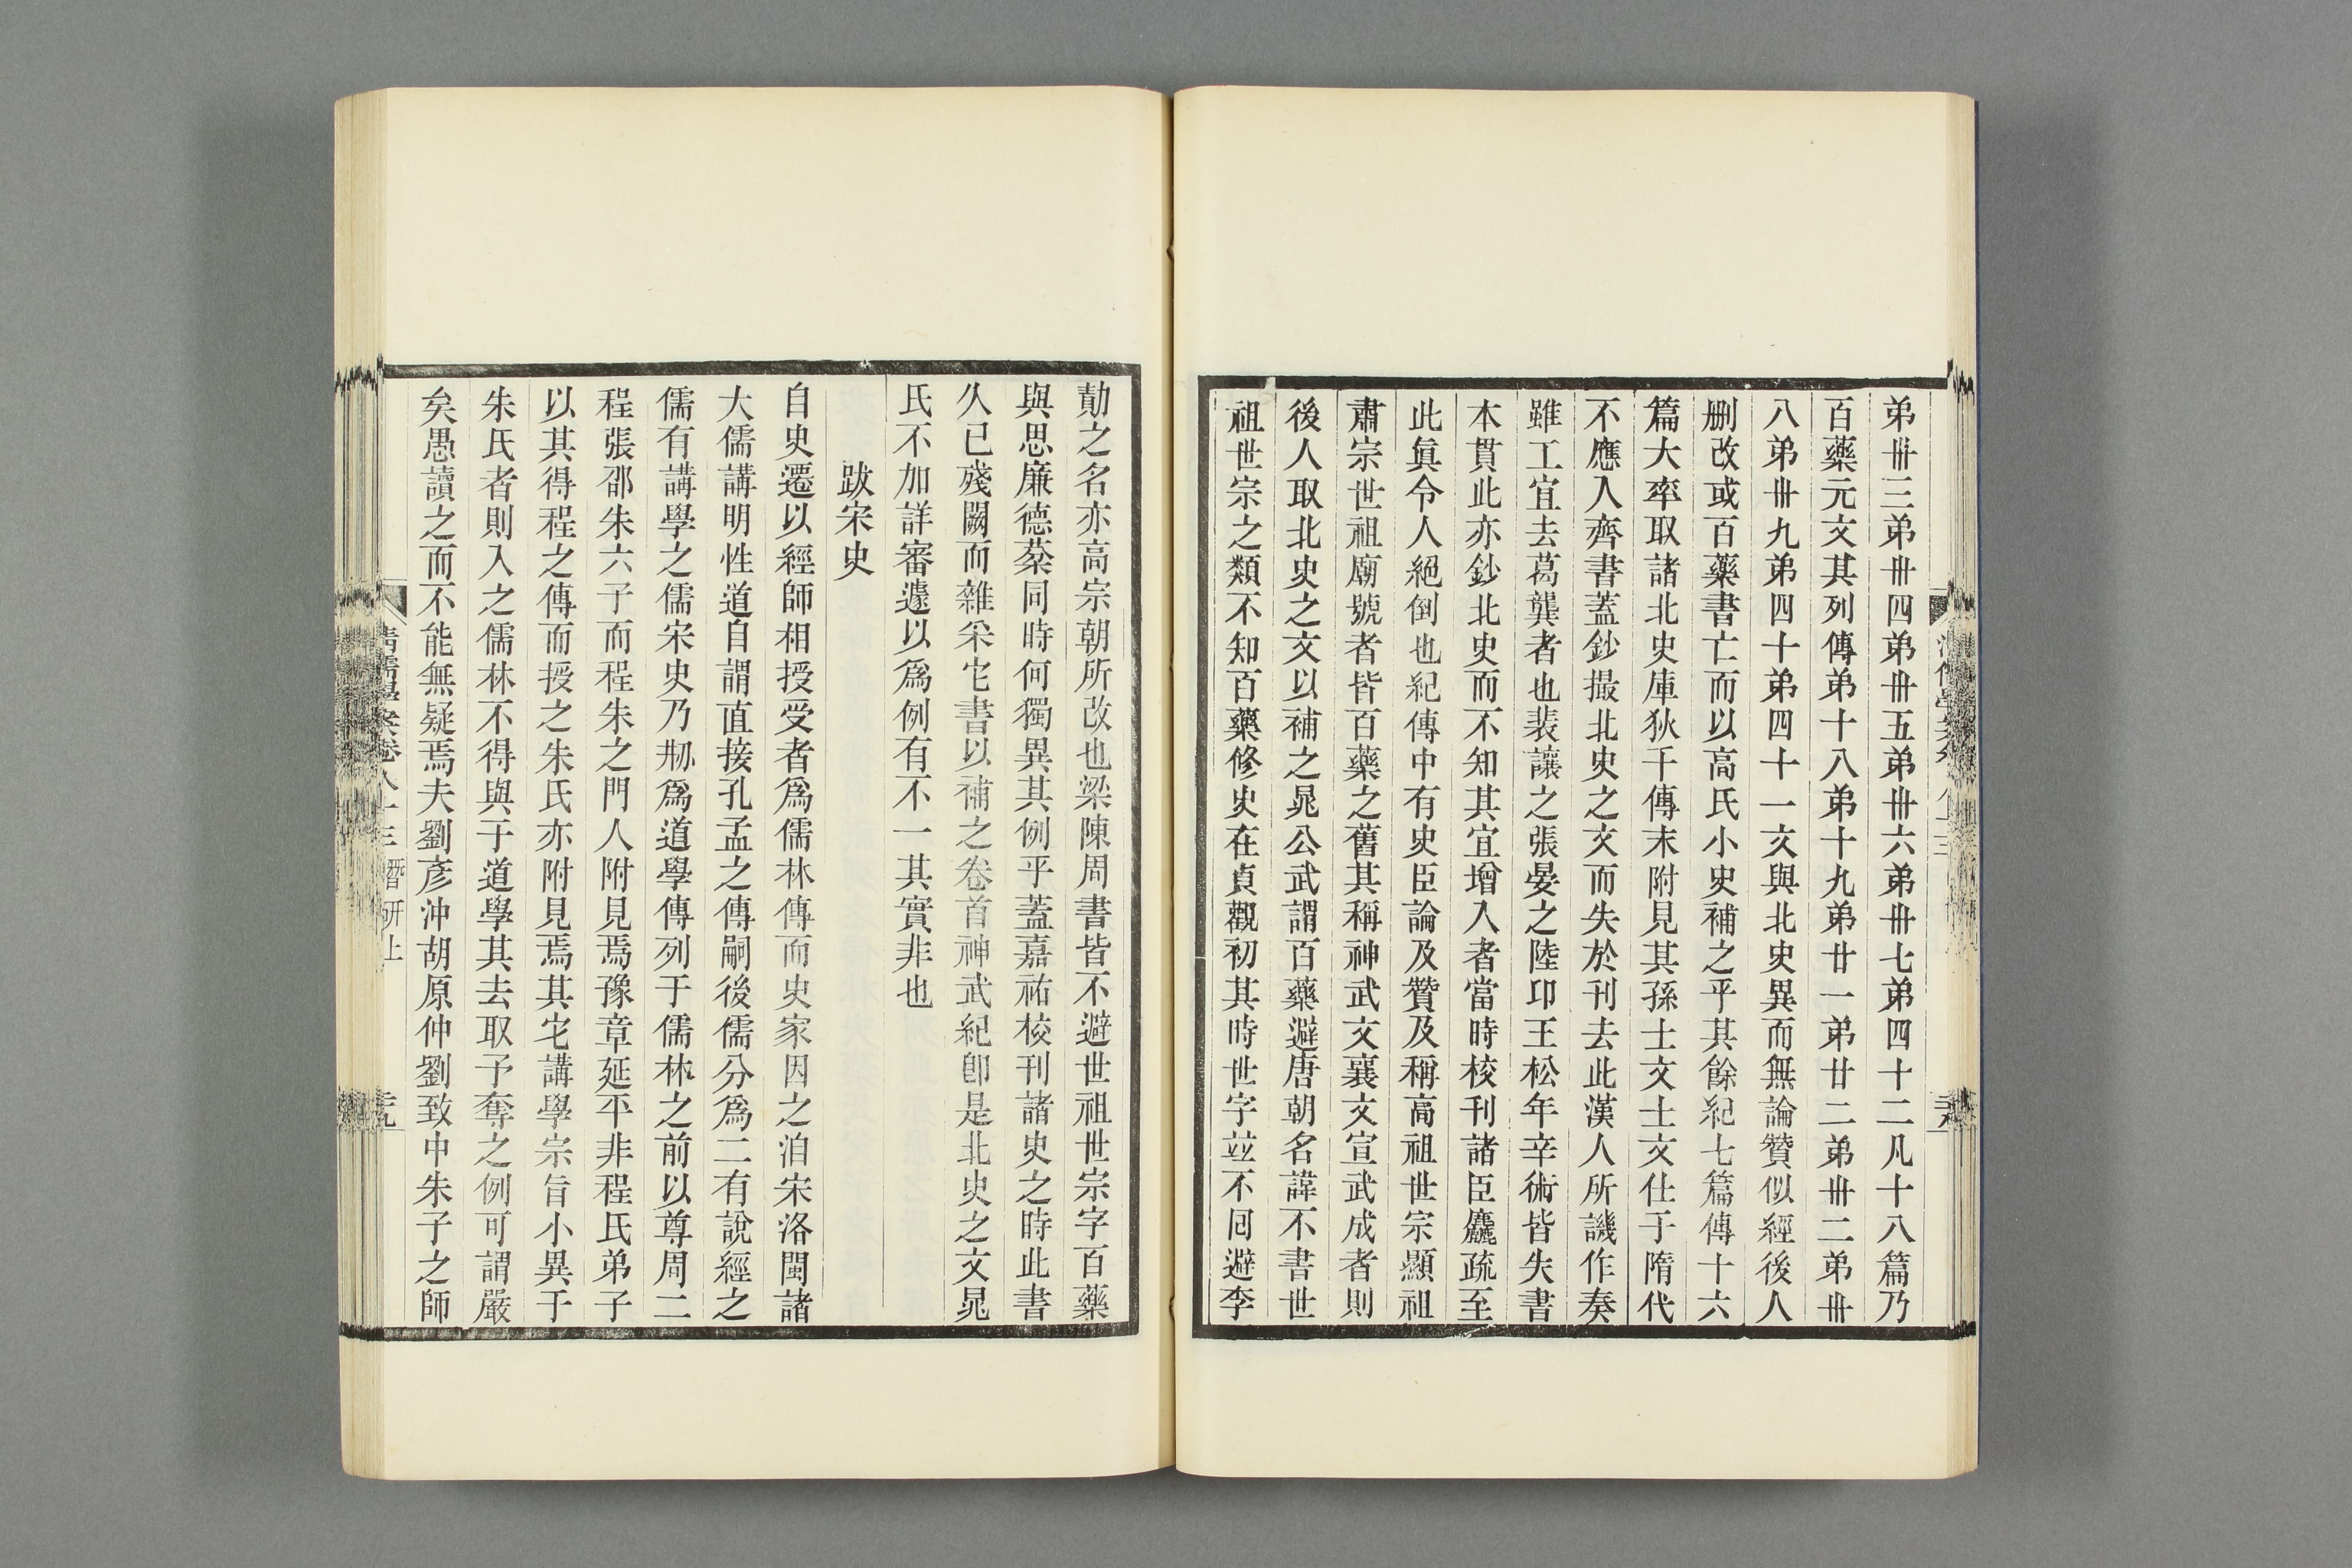 弟卅三弟卅四弟卅五弟卅六弟卅七弟四十二凡十八篇乃
百藥元文其列傳弟十八弟十九弟廿一弟廿二弟卅二弟卅
八弟卅九弟四十弟四十一文與北史異而無論贊似經後人
刪改或百藥書亡而以高氏小史補之乎其餘紀七篇傳十六
篇大率取諸北史庫狄干傳末附見其孫士文士文仕于隋代
不應入齊書蓋鈔撮北史之文而失於刊去此漢人所譏作奏
雖工宜去葛龔者也裴讓之張晏之陸卬王松年辛術皆失書
本貫此亦鈔北史而不知其宜增入者當時校刊諸臣麤疏至
此眞令人絕倒也紀傳中有史臣論及贊及稱高祖世宗顯祖
肅宗世祖廟號者皆百藥之舊其稱神武文襄文宣武成者則
後人取北史之文以補之晁公武謂百藥避唐朝名諱不書世
祖世宗之類不知百藥修史在貞觀初其時世字竝不回避李
勣之名亦高宗朝所改也梁陳周書皆不避世祖世宗字百藥
與思廉德棻同時何獨異其例乎蓋嘉祐校刊諸史之時此書
久已殘闕而雜采它書以補之卷首神武紀卽是北史之文晁
氏不加詳審遽以爲例有不一其實非也
跋宋史
自史遷以經師相授受者爲儒林傳而史家因之洎宋洛閩諸
大儒講明性道自謂直接孔孟之傳嗣後儒分爲二有說經之
儒有講學之儒宋史乃刱爲道學傳列于儒林之前以尊周二
程張邵朱六子而程朱之門人附見焉豫章延平非程氏弟子
以其得程之傳而授之朱氏亦附見焉其它講學宗旨小異于
朱氏者則入之儒林不得與于道學其去取予奪之例可謂嚴
矣愚讀之而不能無疑焉夫劉彥沖胡原仲劉致中朱子之師
清儒學案卷八十三 潛研上